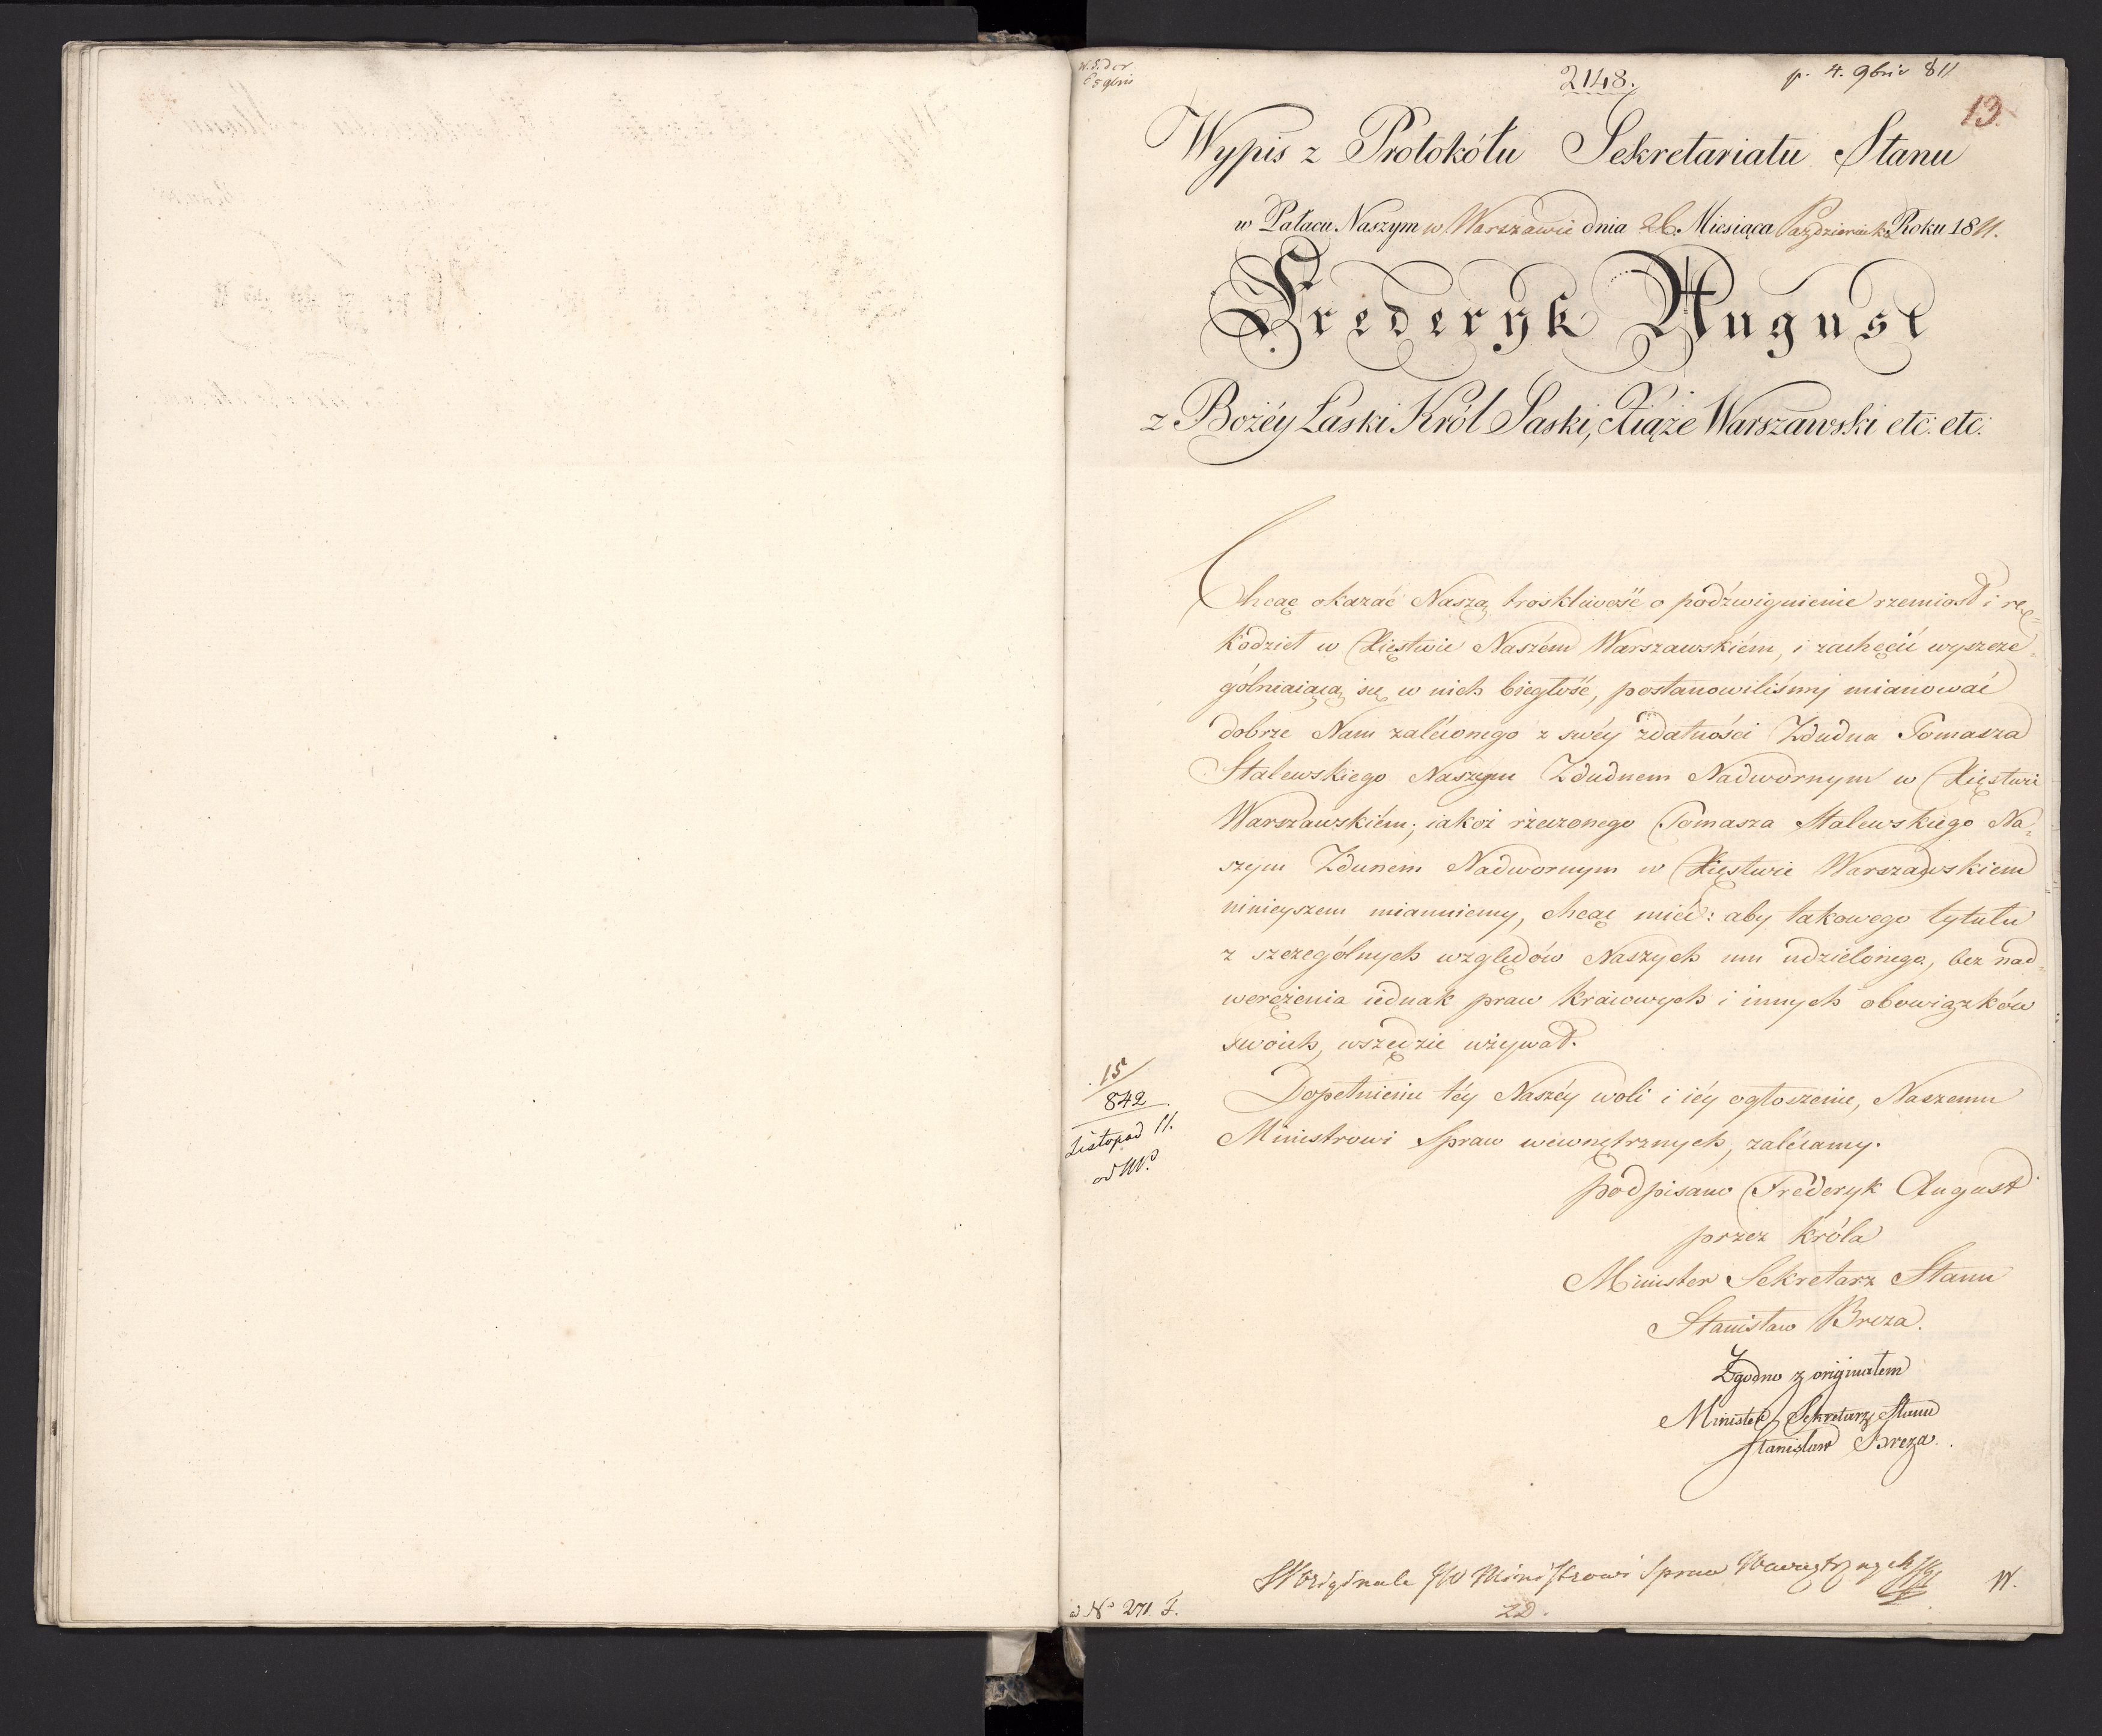 2148.
p. 4. 9bris 811
13.
Wypis z Protokółu Sekretariatu Stanu
w Pałacu Naszym w Warszawie dnia 26. Miesiąca Października Roku 1811.
Frederyk August
z Bożéy Łaski Król Saski, Xiąże Warszawski etc: etc:
Chcąc okazać Naszą troskliwość o podźwignienie rzemiosł i rę-
kodzieł w Xięstwie Naszém Warszawskiém, i zachęcić wyszcze-
gólniaiącą się w nich biegłość, postanowiliśmy mianować
dobrze Nam zaléconego z swéy zdatności Zduna Tomasza
Stalewskiego Naszym Zdudnem Nadwornym w Xięstwie
Warszawskiém; iakoż rzeczonego Tomasza Stalewskiego Na-
szym Zdunem Nadwornym w Xięstwie Warszawskiem
ninieyszem mianuiemy, chcąc mieć: aby takowego tytułu
z szczególnych względów Naszych mu udzielonego, bez nad-
werężenia iednak praw kraiowych i innych obowiązków
swoich, wszędzie używał.
Dopełnienie téy Naszéy woli i iéy ogłoszenie, Naszemu
Ministrowi Spraw wewnętrznych, zalécamy.
15
842
Listopad 11.
podpisano Frederyk August
przez króla
Minister Sekretarz Stanu
Stanisław Breza.
Zgodno z originałem
Minister Sekretarz Stanu
Stanisław Breza.
W Originale JW Ministrowi Spraw Wewnętrznych
ad No 271. F.